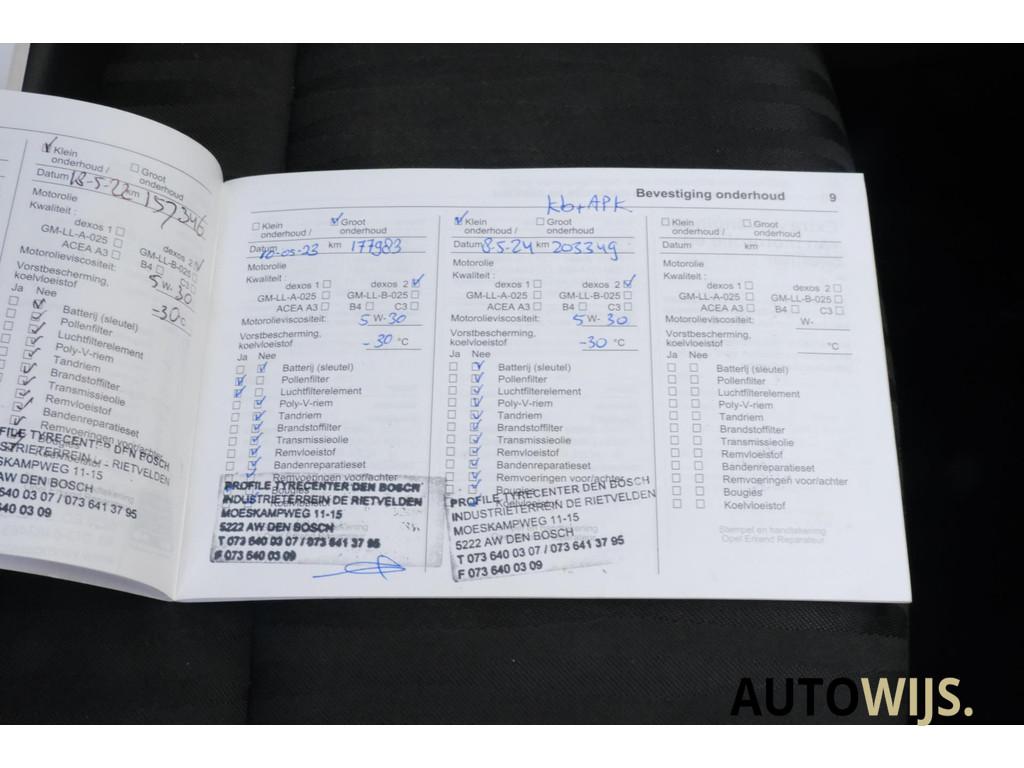 Klein onderhoud /
Groot onderhoud
Datum 18-5-22 km 157346
Motorolie
Kwaliteit :
dexos 1
dexos 2
GM-LL-A-025
GM-LL-B-025
ACEA A3
B4
C3
Motorolieviscositeit: 5 W- 30
Vorstbescherming,
koelvloeistof -30°C
Ja Nee
Batterij (sleutel)
Pollenfilter
Luchtfilterelement
Poly-V-riem
Tandriem
Brandstoffilter
Transmissieolie
Remvloeistof
Bandenreparatieset
Remvoeringen voor/achter
PROFILE TYRECENTER DEN BOSCH
INDUSTRIETERREIN - RIETVELDEN
MOESKAMPWEG 11-15
AW DEN BOSCH
640 03 07 / 073 641 37 95
640 03 09
Bevestiging onderhoud 9
Klein
onderhoud /
Groot
onderhoud
Datum 18-05-23 km 177983
Motorolie
Kwaliteit :
dexos 1 dexos 2
GM-LL-A-025 GM-LL-B-025
ACEA A3 B4 C3
Motorolieviscositeit: 5 W- 30
Vorstbescherming,
koelvloeistof -30 °C
Ja Nee
Batterij (sleutel)
Pollenfilter
Luchtfilterelement
Poly-V-riem
Tandriem
Brandstoffilter
Transmissieolie
Remvloeistof
Bandenreparatieset
Remvoeringen voor/achter
Bougies
PROFILE TYRECENTER DEN BOSCH
INDUSTRIETERREIN DE RIETVELDEN
MOESKAMPWEG 11-15
5222 AW DEN BOSCH
T 073 640 03 07 / 073 641 37 95
F 073 640 03 09
kb+APK
Klein
onderhoud /
Groot
onderhoud
Datum 8-5-24 km 203349
Motorolie
Kwaliteit :
dexos 1 dexos 2
GM-LL-A-025 GM-LL-B-025
ACEA A3 B4 C3
Motorolieviscositeit: 5 W- 30
Vorstbescherming,
koelvloeistof -30 °C
Ja Nee
Batterij (sleutel)
Pollenfilter
Luchtfilterelement
Poly-V-riem
Tandriem
Brandstoffilter
Transmissieolie
Remvloeistof
Bandenreparatieset
Remvoeringen voor/achter
Bougies
Koelvloeistof
PROFILE TYRECENTER DEN BOSCH
INDUSTRIETERREIN DE RIETVELDEN
MOESKAMPWEG 11-15
5222 AW DEN BOSCH
T 073 640 03 07 / 073 641 37 95
F 073 640 03 09
Klein
onderhoud /
Groot
onderhoud
Datum km
Motorolie
Kwaliteit :
dexos 1 dexos 2
GM-LL-A-025 GM-LL-B-025
ACEA A3 B4 C3
Motorolieviscositeit: W-
Vorstbescherming,
koelvloeistof °C
Ja Nee
Batterij (sleutel)
Pollenfilter
Luchtfilterelement
Poly-V-riem
Tandriem
Brandstoffilter
Transmissieolie
Remvloeistof
Bandenreparatieset
Remvoeringen voor/achter
Bougies
Koelvloeistof
Stempel en handtekening
Opel Erkend Reparateur
AUTOWIJS.